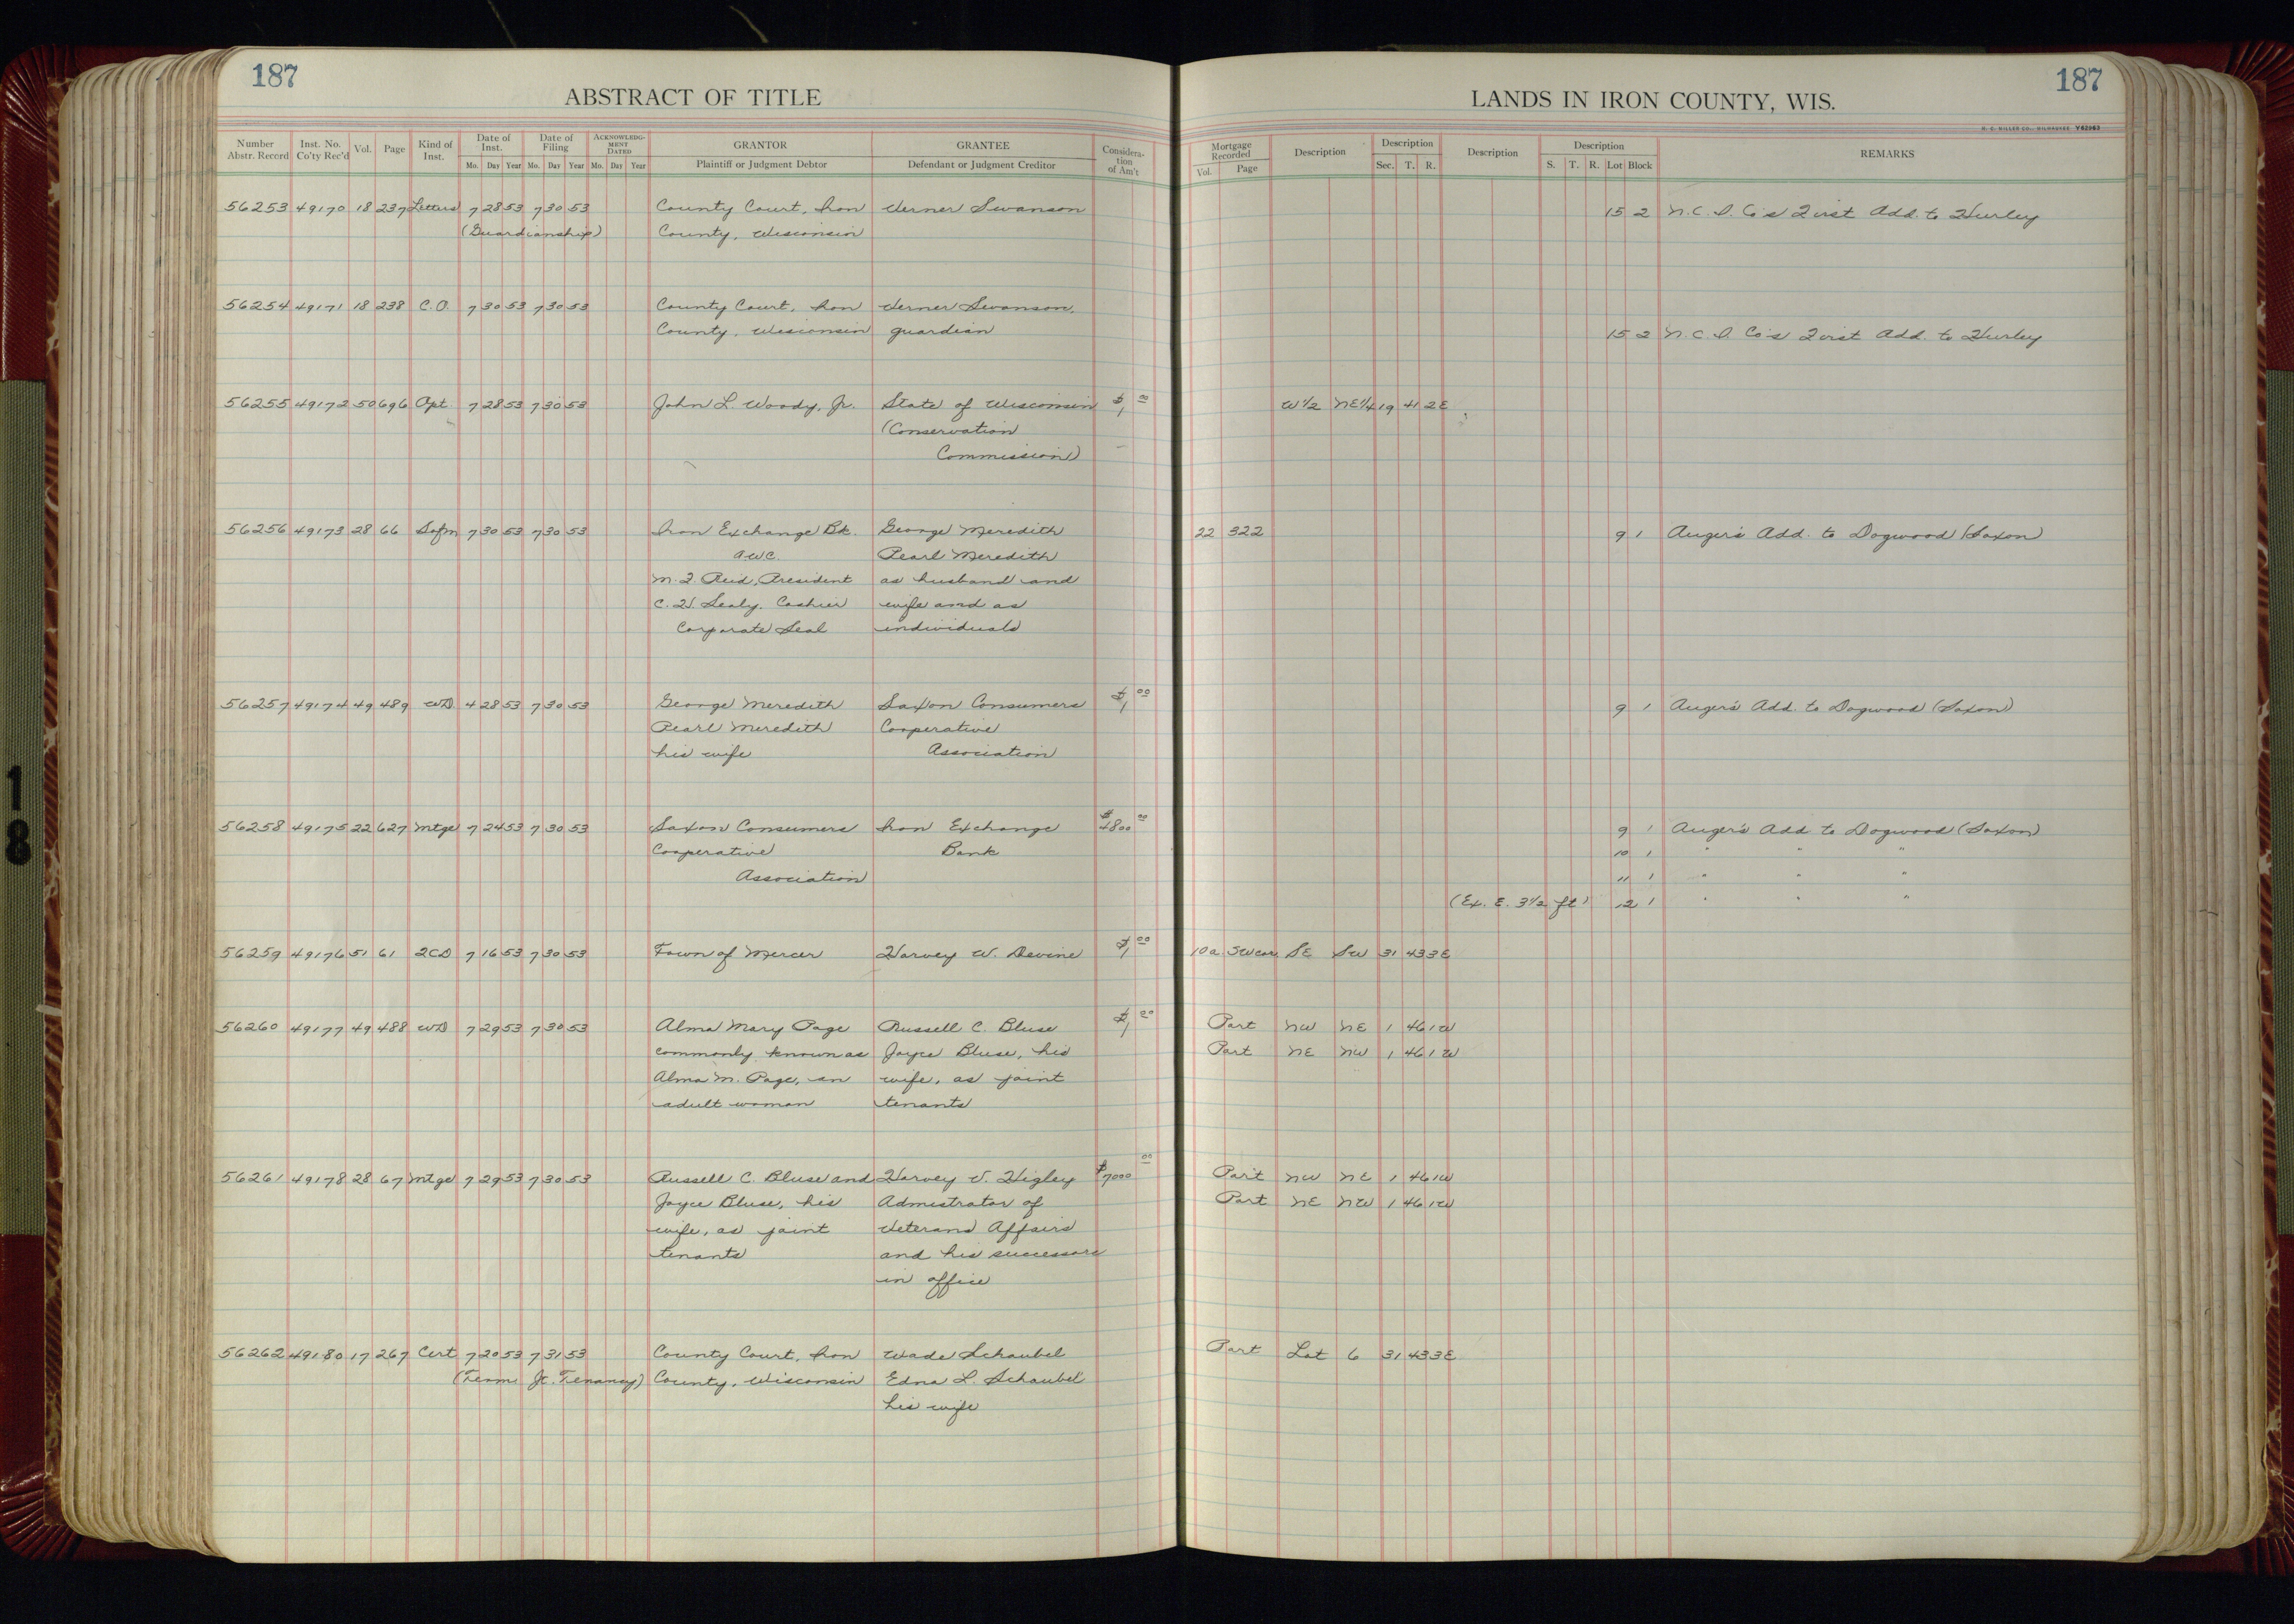 187
ABSTRACT OF TITLE
LANDS IN IRON COUNTY, WIS.
187
H. C. MILLER CO., MILWAUKEE Y62963
Number Abstr. Record | Inst. No. Co'ty Rec'd | Vol. | Page | Kind of Inst. | Date of Inst. Mo. Day Year | Date of Filing Mo. Day Year | ACKNOWLEDGMENT DATED Mo. Day Year | GRANTOR Plaintiff or Judgment Debtor | GRANTEE Defendant or Judgment Creditor | Consideration of Am't | Mortgage Recorded Vol. Page | Description | Description Sec. T. R. | Description | Description S. T. R. Lot Block | REMARKS
56253 49170 18 237 Letters 7 28 53 7 30 53 County Court, Iron Verner Swanson 15 2 N.C.I. Co's First Add. to Hurley
(Guardianship) County, Wisconsin
56254 49171 18 238 C.O. 7 30 53 7 30 53 County Court, Iron Verner Swanson,
County, Wisconsin guardian 15 2 N.C.I. Co's First Add. to Hurley
56255 49172 50 696 Opt 7 28 53 7 30 53 John L. Woody, Jr. State of Wisconsin $1 00 W 1/2 NE 1/4 19 41 2E
(Conservation
Commission)
56256 49173 28 66 Sofm 7 30 53 7 30 53 Iron Exchange Bk. George Meredith 22 322 9 1 Auger's Add. to Dogwood (Saxon)
awc Pearl Meredith
M. F. Reid, President as husband and
C. H. Sealy. Cashier wife and as
Corporate Seal individuals
56257 49174 49 489 WD 4 28 53 7 30 53 George Meredith Saxon Consumers $1 00 9 1 Auger's Add. to Dogwood (Saxon)
Pearl Meredith Cooperative
his wife Association
56258 49175 22 627 Mtge 7 24 53 7 30 53 Saxon Consumers Iron Exchange $4800 00 9 1 Auger's Add to Dogwood (Saxon)
Cooperative Bank 10 1 " " "
Association 11 1 " " "
(Ex. E. 3 1/2 ft) 12 1 " " "
56259 49176 51 61 2CD 7 16 53 7 30 53 Town of Mercer Harvey W. Devine $1 00 10a SWcor SE SW 31 43 3E
56260 49177 49 488 WD 7 29 53 7 30 53 Alma Mary Page Russell C. Bluse $1 00 Part NW NE 1 46 1W
commonly known as Joyce Bluse, his Part NE NW 1 46 1W
Alma M. Page, an wife, as joint
adult woman tenants
56261 49178 28 67 Mtge 7 29 53 7 30 53 Russell C. Bluse and Harvey V. Higley $7000 00 Part NW NE 1 46 1W
Joyce Bluse, his Admistrator of Part NE NW 1 46 1W
wife, as joint Veterans Affairs
tenants and his successors
in office
56262 49180 17 267 Cert 7 20 53 7 31 53 County Court, Iron Wade Schaubel Part Lot 6 31 43 3E
(Term. Jt. Tenancy) County, Wisconsin Edna L. Schaubel
his wife
18